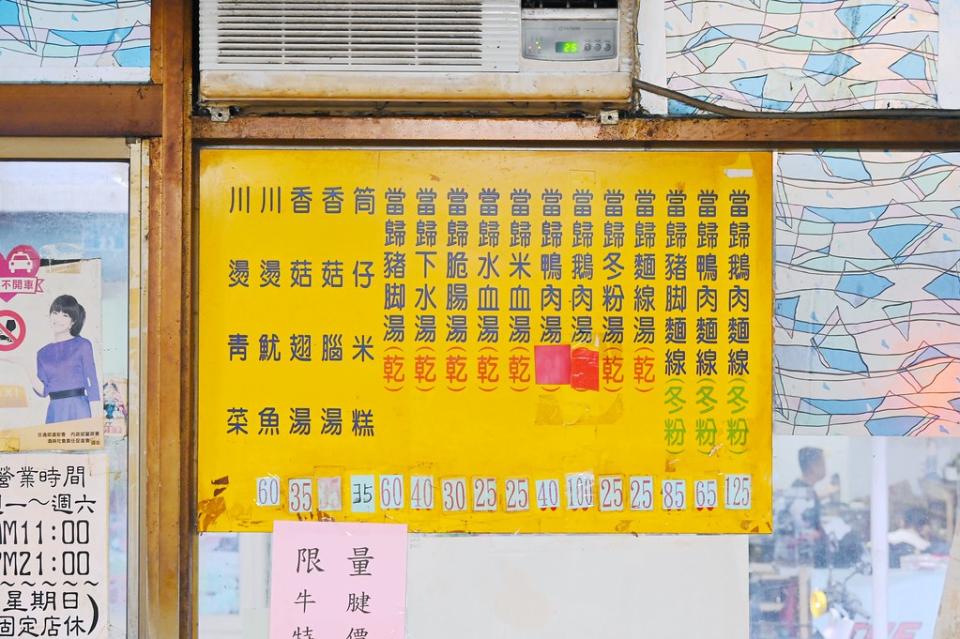 當歸鵝肉麵線(冬粉)
當歸鴨肉麵線(冬粉)
當歸豬脚麵線(冬粉)
當歸麵線湯(乾)
當歸冬粉湯(乾)
當歸鵝肉湯
當歸鴨肉湯
當歸米血湯(乾)
當歸水血湯(乾)
當歸脆腸湯(乾)
當歸下水湯(乾)
當歸豬脚湯(乾)
筒仔米糕
香菇腦湯
香菇翅湯
川燙魷魚
川燙青菜
60 35 35 60 40 30 25 25 40 100 25 25 85 65 125
26
不開車
營業時間
一～週六
AM11:00
PM21:00
星期日)
固定店休
限量
牛腱
特價